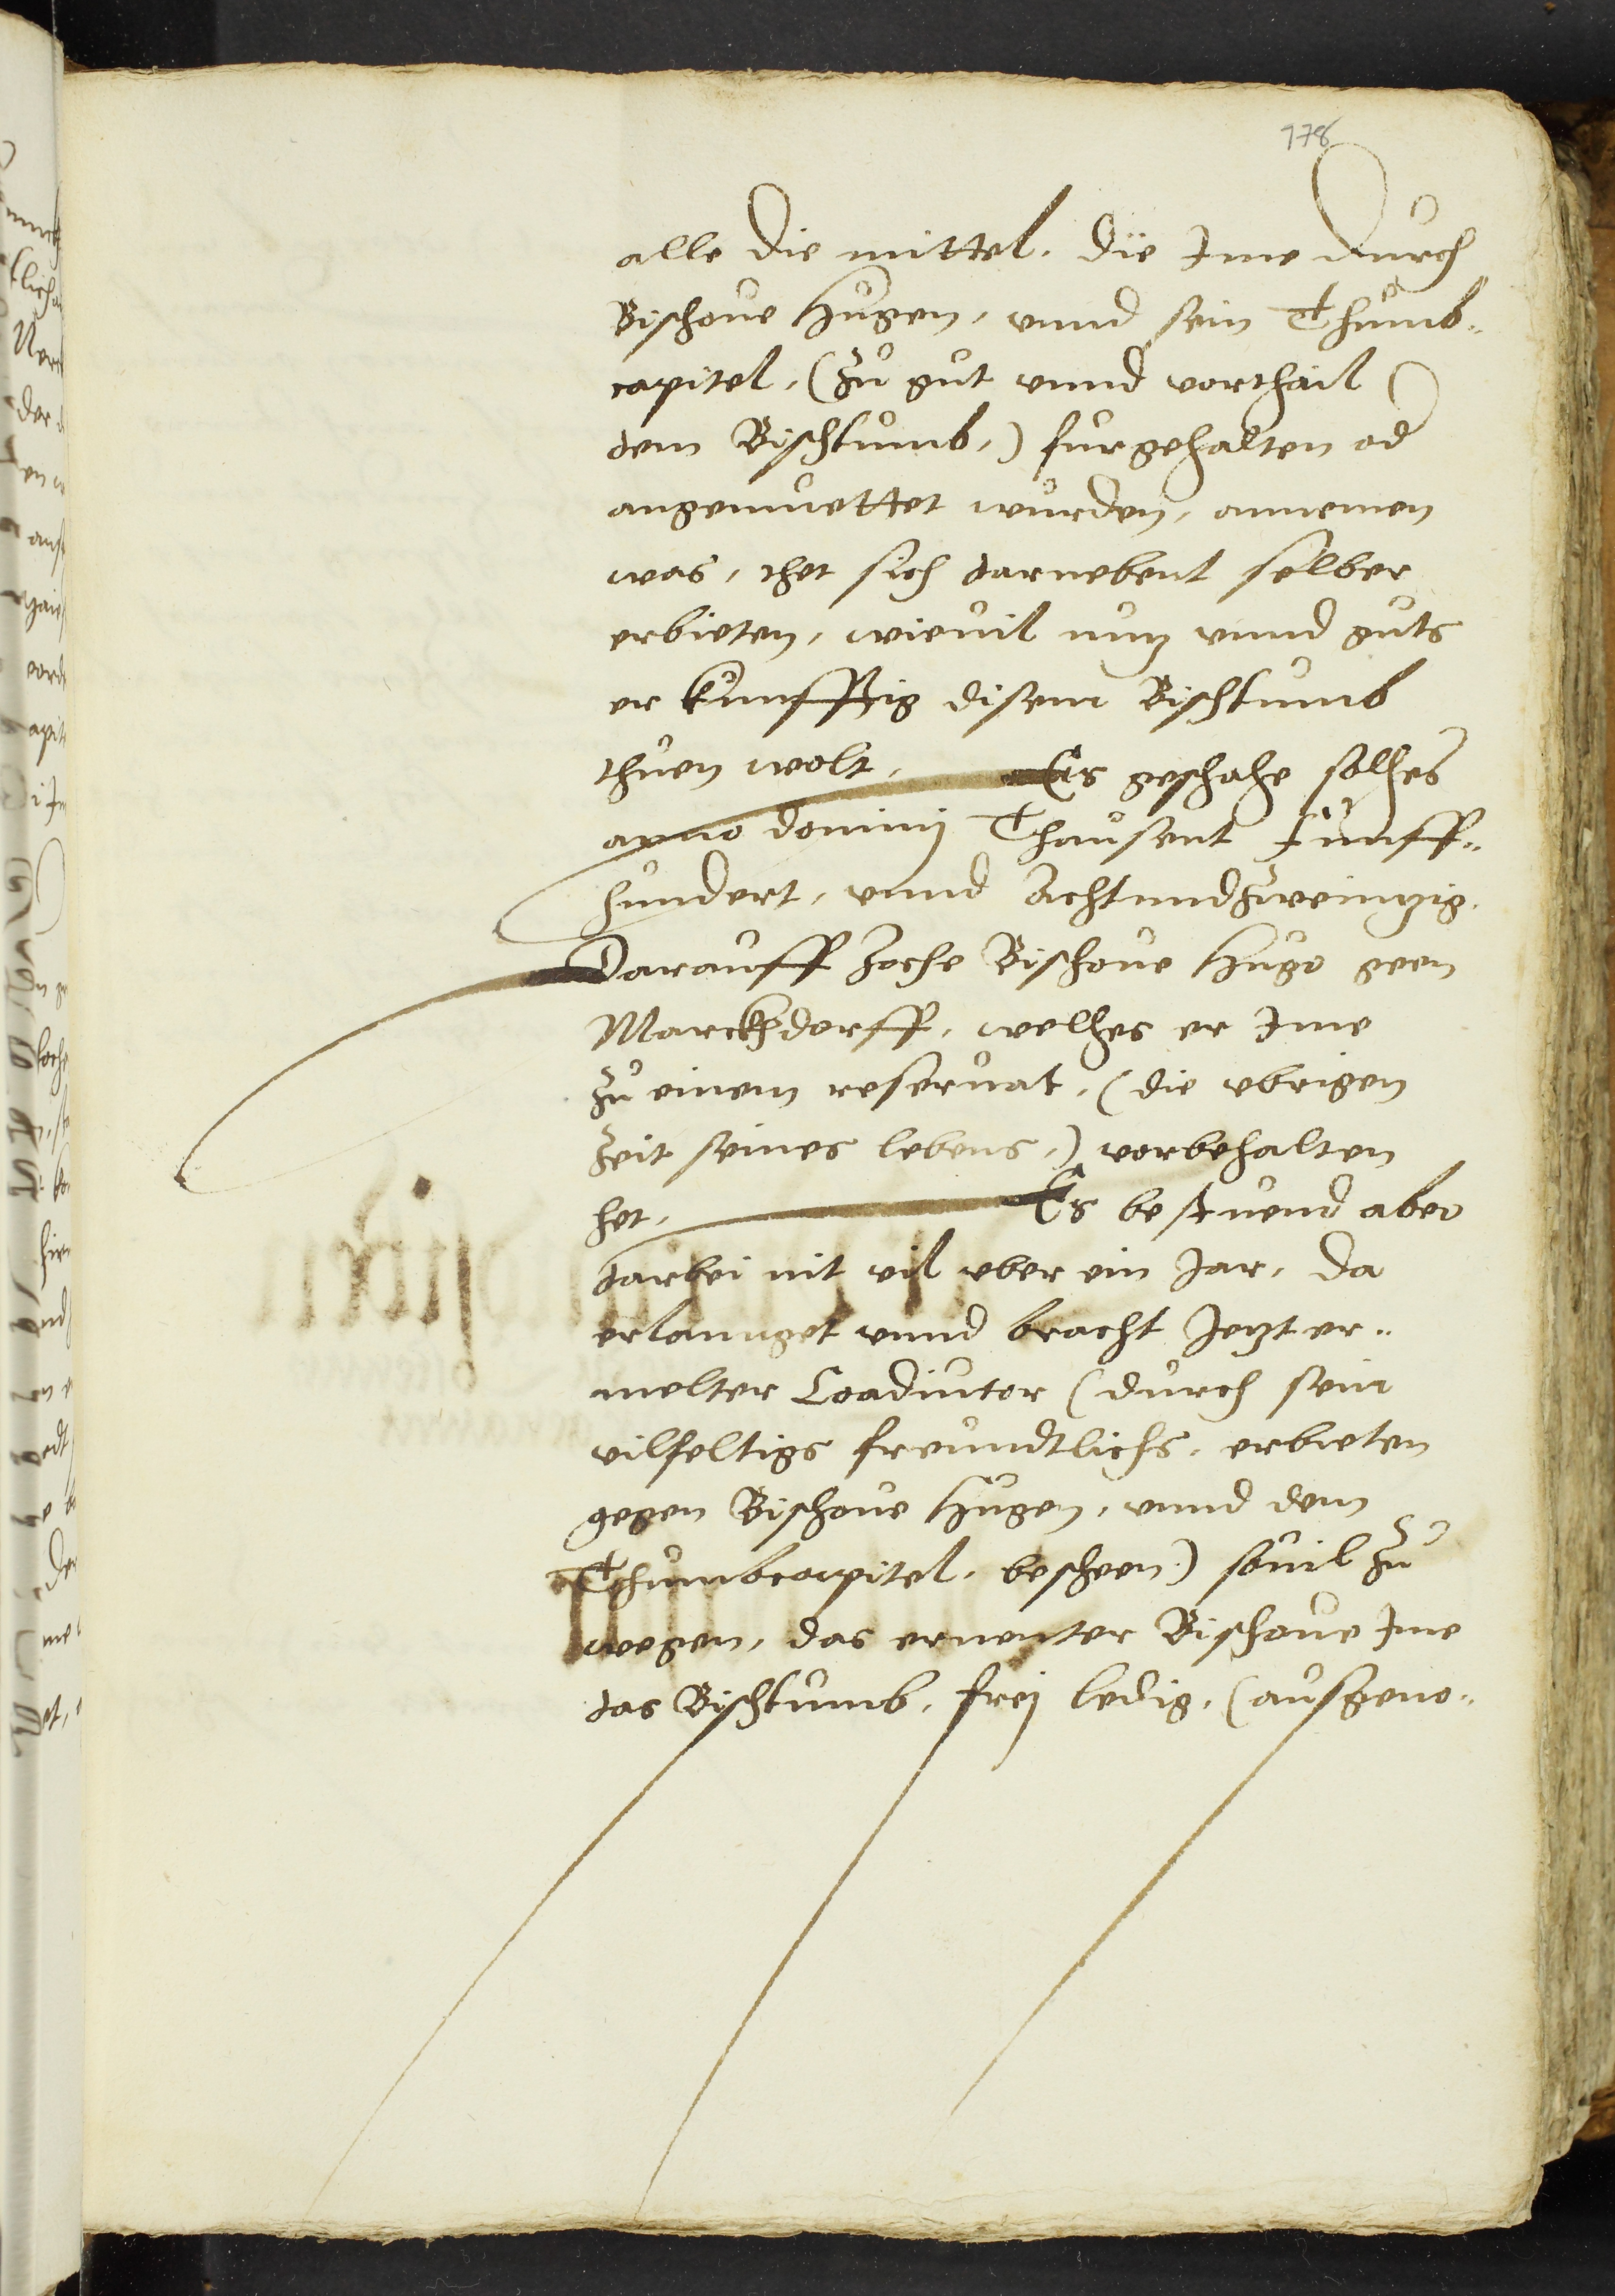 978
alle die mittel. die Ime durch
Bischoue Hugen, vnnd sein Thumb-
capitel, (zu gut vnnd vorthail
dem Bischtumb,) furgehalten od
angemuettet wurden, annemen
was, thet sich darnebent selber
erbieten, wieuil nutz vnnd guts
er kunfftig disem Bischtumb
thuen wolt, Es geschahe solhes
anno dominj Thausent Funff-
hundert, vnnd Achtundzweintzig.
Darauff zoche Bischoue Hugo geen
Marckhdorff, welhes er Ime
zu einem reseruat, (die vbrigen
Zeit seines lebens,) vorbehalten
het, Es bestuend aber
darbei nit vil vber ein Jar, da
erlannget vnnd bracht Jetzt er-
melter Coadiutor (durch sein
vilfeltigs freundtlichs. erbieten
gegen Bischoue Hugen, vnnd dem
Thumbcapitel. bescheen) souil zu
wegen, das ernenter Bischoue Ime
das Bischtumb, frej ledig, (ausgeno-